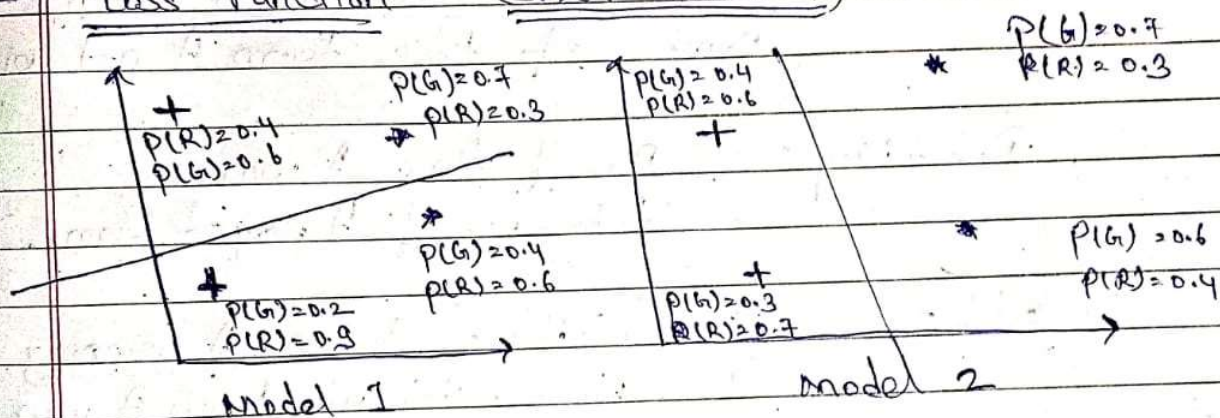 Loss Function
P(G)=0.7
P(R)=0.3
+
P(R)=0.4
P(G)=0.6
P(G)=0.7
P(R)=0.3
P(G)=0.4
P(R)=0.6
+
P(G)=0.4
P(R)=0.6
+
P(G)=0.2
P(R)=0.9
+
P(G)=0.3
P(R)=0.7
P(G)=0.6
P(R)=0.4
Model 1
model 2